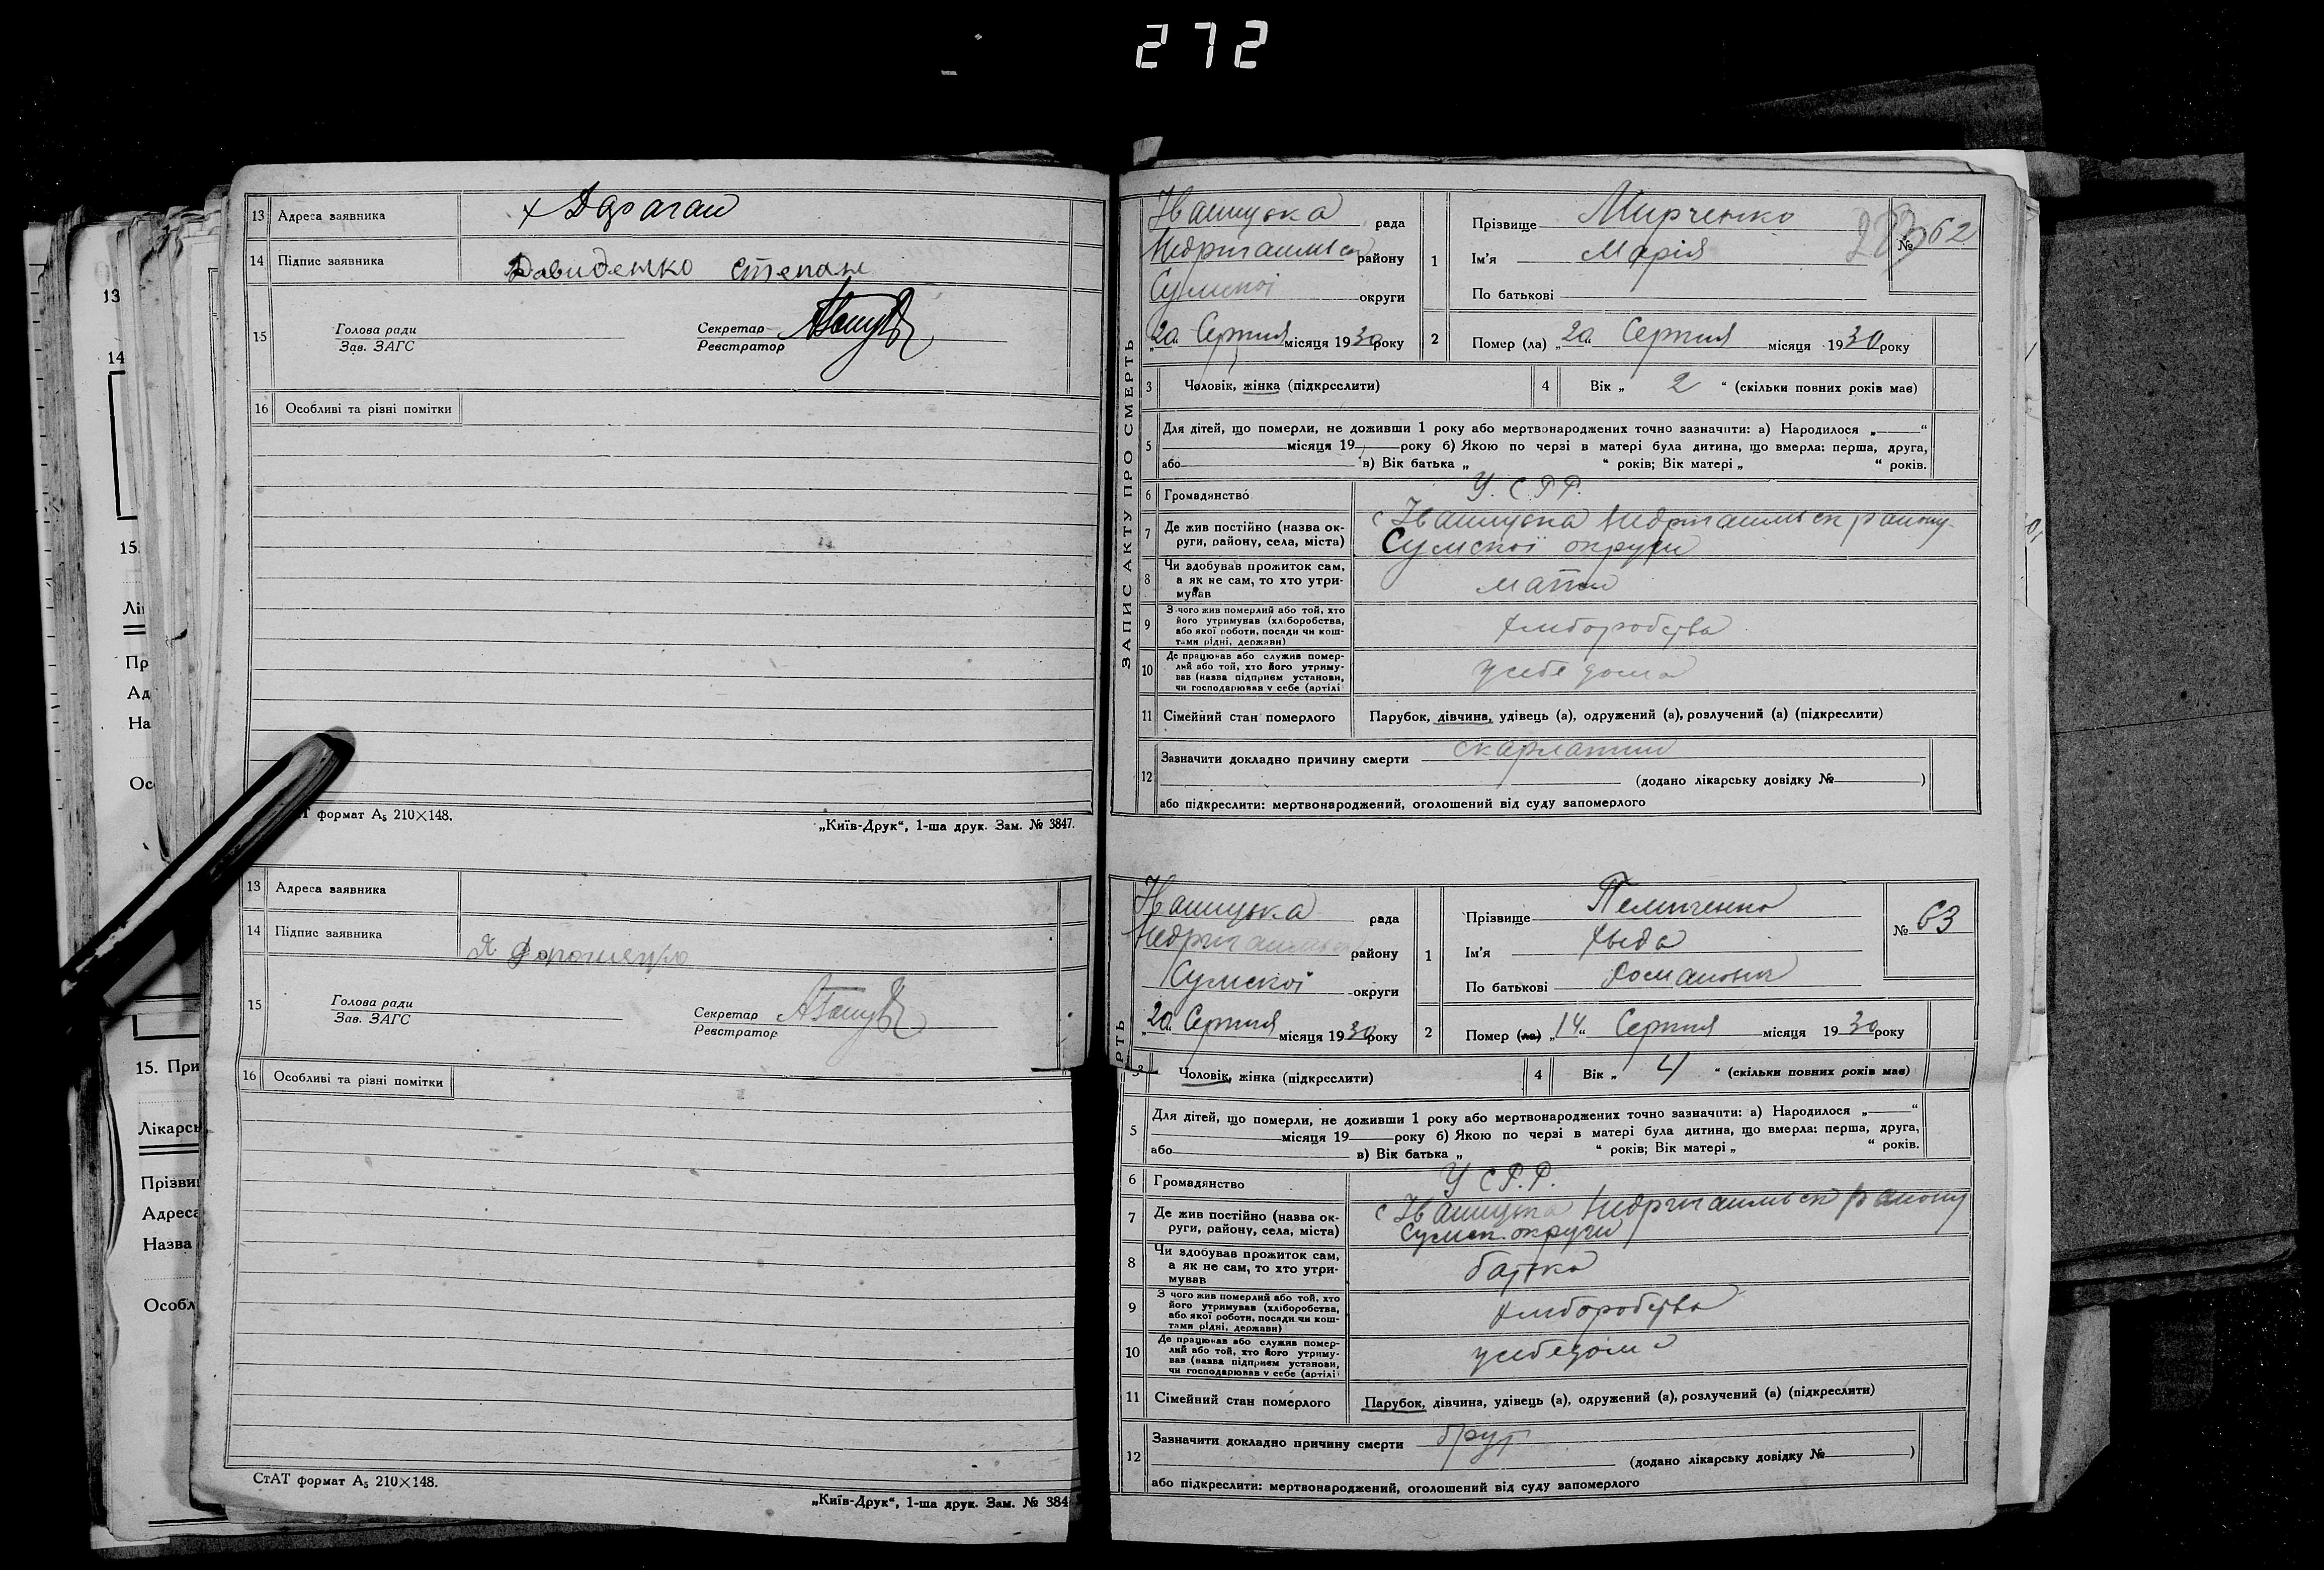 272
13 Адреса заявника х Дараган
14 Підпис заявника Давиденко Степан
15 Голова ради Секретар
Зав. ЗАГС Реєстратор
16 Особливі та різні помітки
формат А5 210×148.
„Київ-Друк“, 1-ша друк. Зам. № 3847.
13 Адреса заявника
14 Підпис заявника
15 Голова ради Секретар
Зав. ЗАГС Реєстратор
16 Особливі та різні помітки
СтАТ формат А5 210×148.
„Київ-Друк“, 1-ша друк. Зам. № 384
13
14
15.
Лі
Пр
Ад
На
Ос
15. При
Лікарсь
Прізви
Адреса
Назва
Особл
ЗАПИС АКТУ ПРО СМЕРТЬ
Іваницька рада
району
Сумської округи
„20“ Серпня місяця 1930 року
1 Прізвище Мирченко
Ім'я Марія
По батькові
№ 62
2 Помер (ла) „20“ Серпня місяця 1930 року
3 Чоловік, жінка (підкреслити) 4 Вік „ 2 “ (скільки повних років має)
5 Для дітей, що померли, не доживши 1 року або мертвонароджених точно зазначити: а) Народилося „ “
місяця 19 року б) Якою по черзі в матері була дитина, що вмерла: перша, друга,
або в) Вік батька „ “ років; Вік матері „ “ років.
6 Громадянство У.С.Р.Р.
7 Де жив постійно (назва ок- с Іваницька району
руги, району, села, міста) Сумскої округи
8 Чи здобував прожиток сам,
а як не сам, то хто утри- мати
мував
9 З чого жив померлий або той, хто
його утримував (хліборобства, хліборобства
або якої роботи, посади чи кош-
тами рідні, держави)
10 Де працював або служив помер-
лий або той, хто його утриму- у себе дома
вав (назва підприєм установи,
чи господарював у себе (артілі
11 Сімейний стан померлого Парубок, дівчина, удівець (а), одружений (а), розлучений (а) (підкреслити)
12 Зазначити докладно причину смерти скарлатини
(додано лікарську довідку № )
або підкреслити: мертвонароджений, оголошений від суду запомерлого
РТЬ
Іваницька рада
району
Сумскої округи
„20“ Серпня місяця 1930 року
1 Прізвище
Ім'я
По батькові
№ 63
2 Помер (ла) „14“ Серпня місяця 1930 року
3 Чоловік, жінка (підкреслити) 4 Вік „ 4 “ (скільки повних років має)
5 Для дітей, що померли, не доживши 1 року або мертвонароджених точно зазначити: а) Народилося „ “
місяця 19 року б) Якою по черзі в матері була дитина, що вмерла: перша, друга,
або в) Вік батька „ “ років; Вік матері „ “ років.
6 Громадянство У С.Р.Р.
7 Де жив постійно (назва ок- с Іваницька району
руги, району, села, міста) Сумск. округи
8 Чи здобував прожиток сам,
а як не сам, то хто утри- батько
мував
9 З чого жив померлий або той, хто
його утримував (хліборобства, хліборобства
або якої роботи, посади чи кош-
тами рідні, держави)
10 Де працював або служив помер-
лий або той, хто його утриму- у себе дома
вав (назва підприєм установи,
чи господарював у себе (артілі
11 Сімейний стан померлого Парубок, дівчина, удівець (а), одружений (а), розлучений (а) (підкреслити)
12 Зазначити докладно причину смерти
(додано лікарську довідку № )
або підкреслити: мертвонароджений, оголошений від суду запомерлого